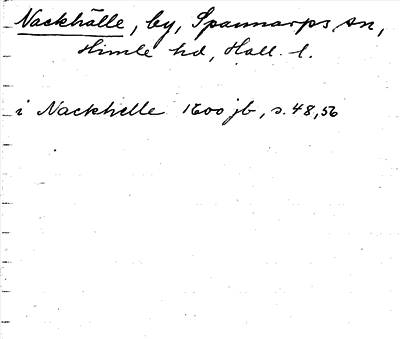 Nackhälle, by, Spannarps sn,
Himle hd, Hall. l.
i Nackhelle 1600 jb, s. 48, 56